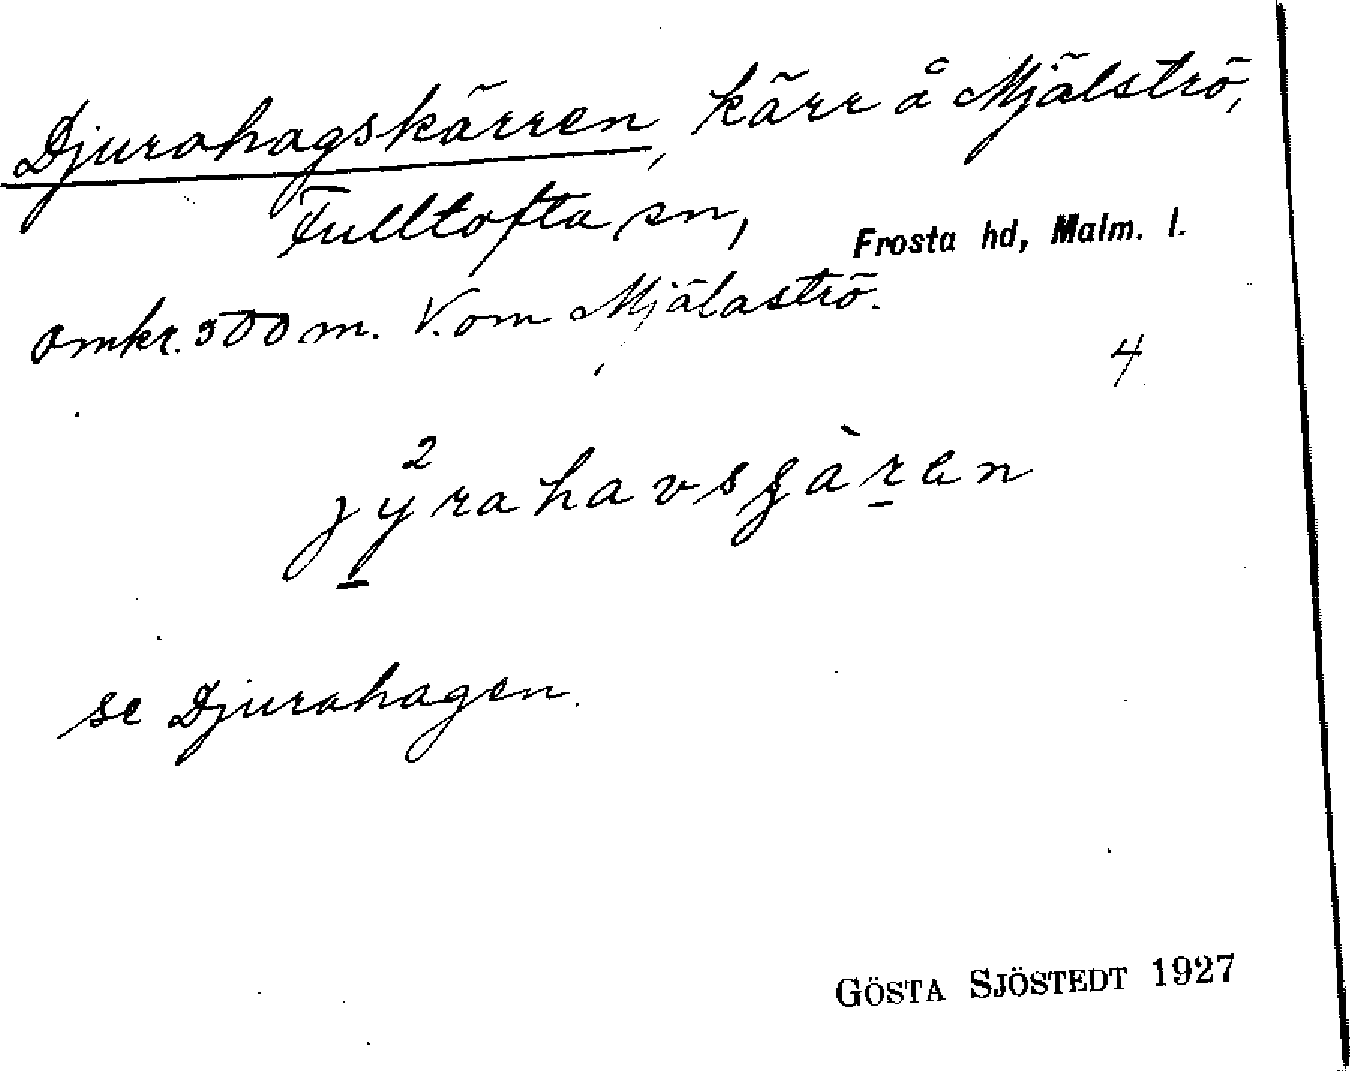 Djurahagskärren, kärr å Mjälströ,
Fulltofta sn, Frosta hd, Malm. l.
omkr. 500 m. V. om Mjälaströ.
4
se Djurahagen.
GÖSTA SJÖSTEDT 1927